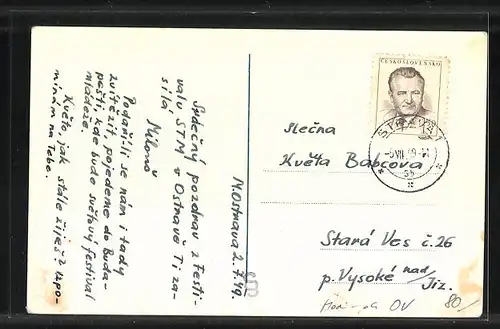 M. Ostrava 2.7.49.
Srdečný pozdrav z Festi-
valu STM v Ostravě Ti za-
sílá
Miloš
Podaří-li se nám i tady
zvítězit, pojedeme do Buda-
pešti, kde bude světový festival
mládeže.
Květo, jak stále žiješ? Vzpo-
mínám na Tebe.
ČESKOSLOVENSKO
OSTRAVA
Slečna
Květa Babcova
Stará Ves č. 26
p. Vysoké nad/Jiz.
OV
80